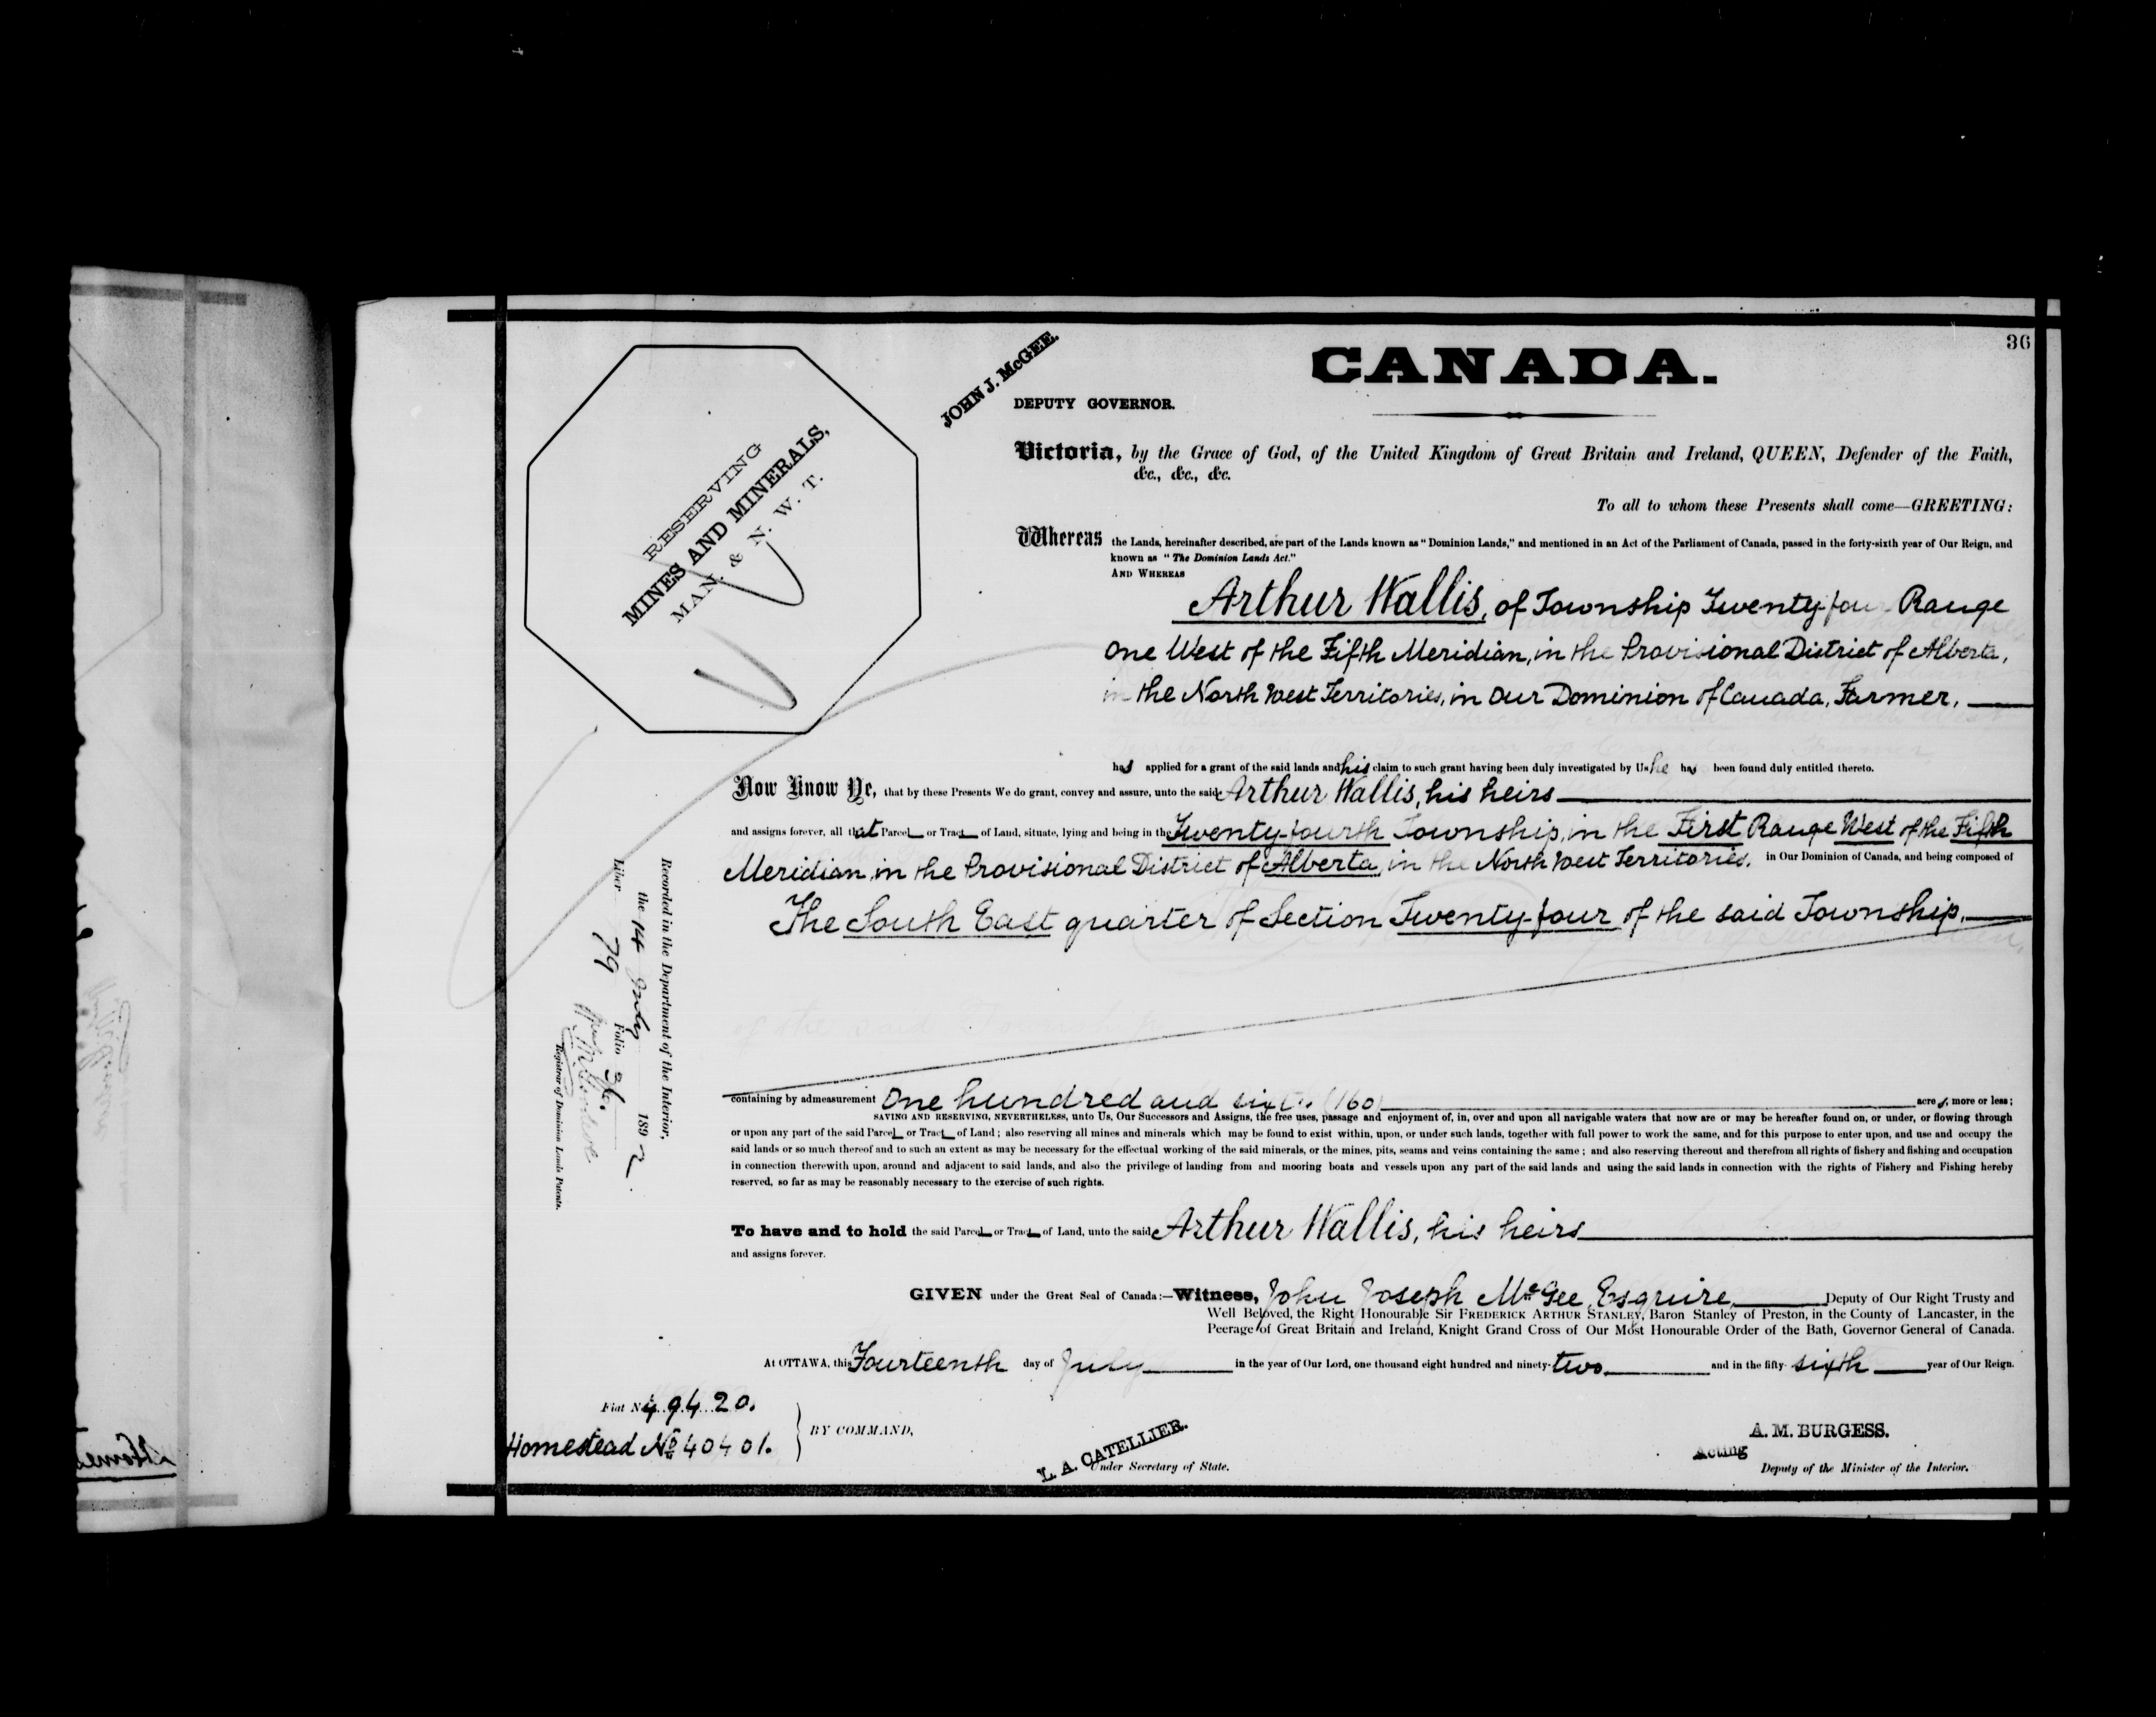 36
CANADA.
JOHN J. McGEE.
DEPUTY GOVERNOR.
RESERVING
MINES AND MINERALS,
MAN. & N. W. T.
Victoria, by the Grace of God, of the United Kingdom of Great Britain and Ireland, QUEEN, Defender of the Faith,
&c., &c., &c.
To all to whom these Presents shall come—GREETING:
Whereas the Lands, hereinafter described, are part of the Lands known as "Dominion Lands," and mentioned in an Act of the Parliament of Canada, passed in the forty-sixth year of Our Reign, and
known as "The Dominion Lands Act."
AND WHEREAS
Arthur Wallis, of Township Twenty-four Range
One West of the Fifth Meridian, in the Provisional District of Alberta,
in the North West Territories, in Our Dominion of Canada, Farmer,
has applied for a grant of the said lands and his claim to such grant having been duly investigated by Us he has been found duly entitled thereto.
Now Know Ye, that by these Presents We do grant, convey and assure, unto the said Arthur Wallis, his heirs
and assigns forever, all that Parcel or Tract of Land, situate, lying and being in the Twenty-fourth Township, in the First Range West of the Fifth
Meridian, in the Provisional District of Alberta, in the North West Territories, in Our Dominion of Canada, and being composed of
The South East quarter of Section Twenty-four of the said Township.
containing by admeasurement One hundred and sixty (160) acres, more or less;
SAVING AND RESERVING, NEVERTHELESS, unto Us, Our Successors and Assigns, the free uses, passage and enjoyment of, in, over and upon all navigable waters that now are or may be hereafter found on, or under, or flowing through
or upon any part of the said Parcel or Tract of Land; also reserving all mines and minerals which may be found to exist within, upon, or under such lands, together with full power to work the same, and for this purpose to enter upon, and use and occupy the
said lands or so much thereof and to such an extent as may be necessary for the effectual working of the said minerals, or the mines, pits, seams and veins containing the same; and also reserving thereout and therefrom all rights of fishery and fishing and occupation
in connection therewith upon, around and adjacent to said lands, and also the privilege of landing from and mooring boats and vessels upon any part of the said lands and using the said lands in connection with the rights of Fishery and Fishing hereby
reserved, so far as may be reasonably necessary to the exercise of such rights.
To have and to hold the said Parcel or Tract of Land, unto the said Arthur Wallis, his heirs
and assigns forever.
GIVEN under the Great Seal of Canada:—Witness, John Joseph McGee, Esquire, Deputy of Our Right Trusty and
Well Beloved, the Right Honourable Sir FREDERICK ARTHUR STANLEY, Baron Stanley of Preston, in the County of Lancaster, in the
Peerage of Great Britain and Ireland, Knight Grand Cross of Our Most Honourable Order of the Bath, Governor General of Canada.
At OTTAWA, this Fourteenth day of July in the year of Our Lord, one thousand eight hundred and ninety-two and in the fifty-sixth year of Our Reign.
Fiat No 49420.
Homestead No 40401.
BY COMMAND,
L. A. CATELLIER.
Under Secretary of State.
A. M. BURGESS.
Acting
Deputy of the Minister of the Interior.
Recorded in the Department of the Interior,
the 14 July 1892.
Liber 79 Folio 36.
Registrar of Dominion Lands Patents.